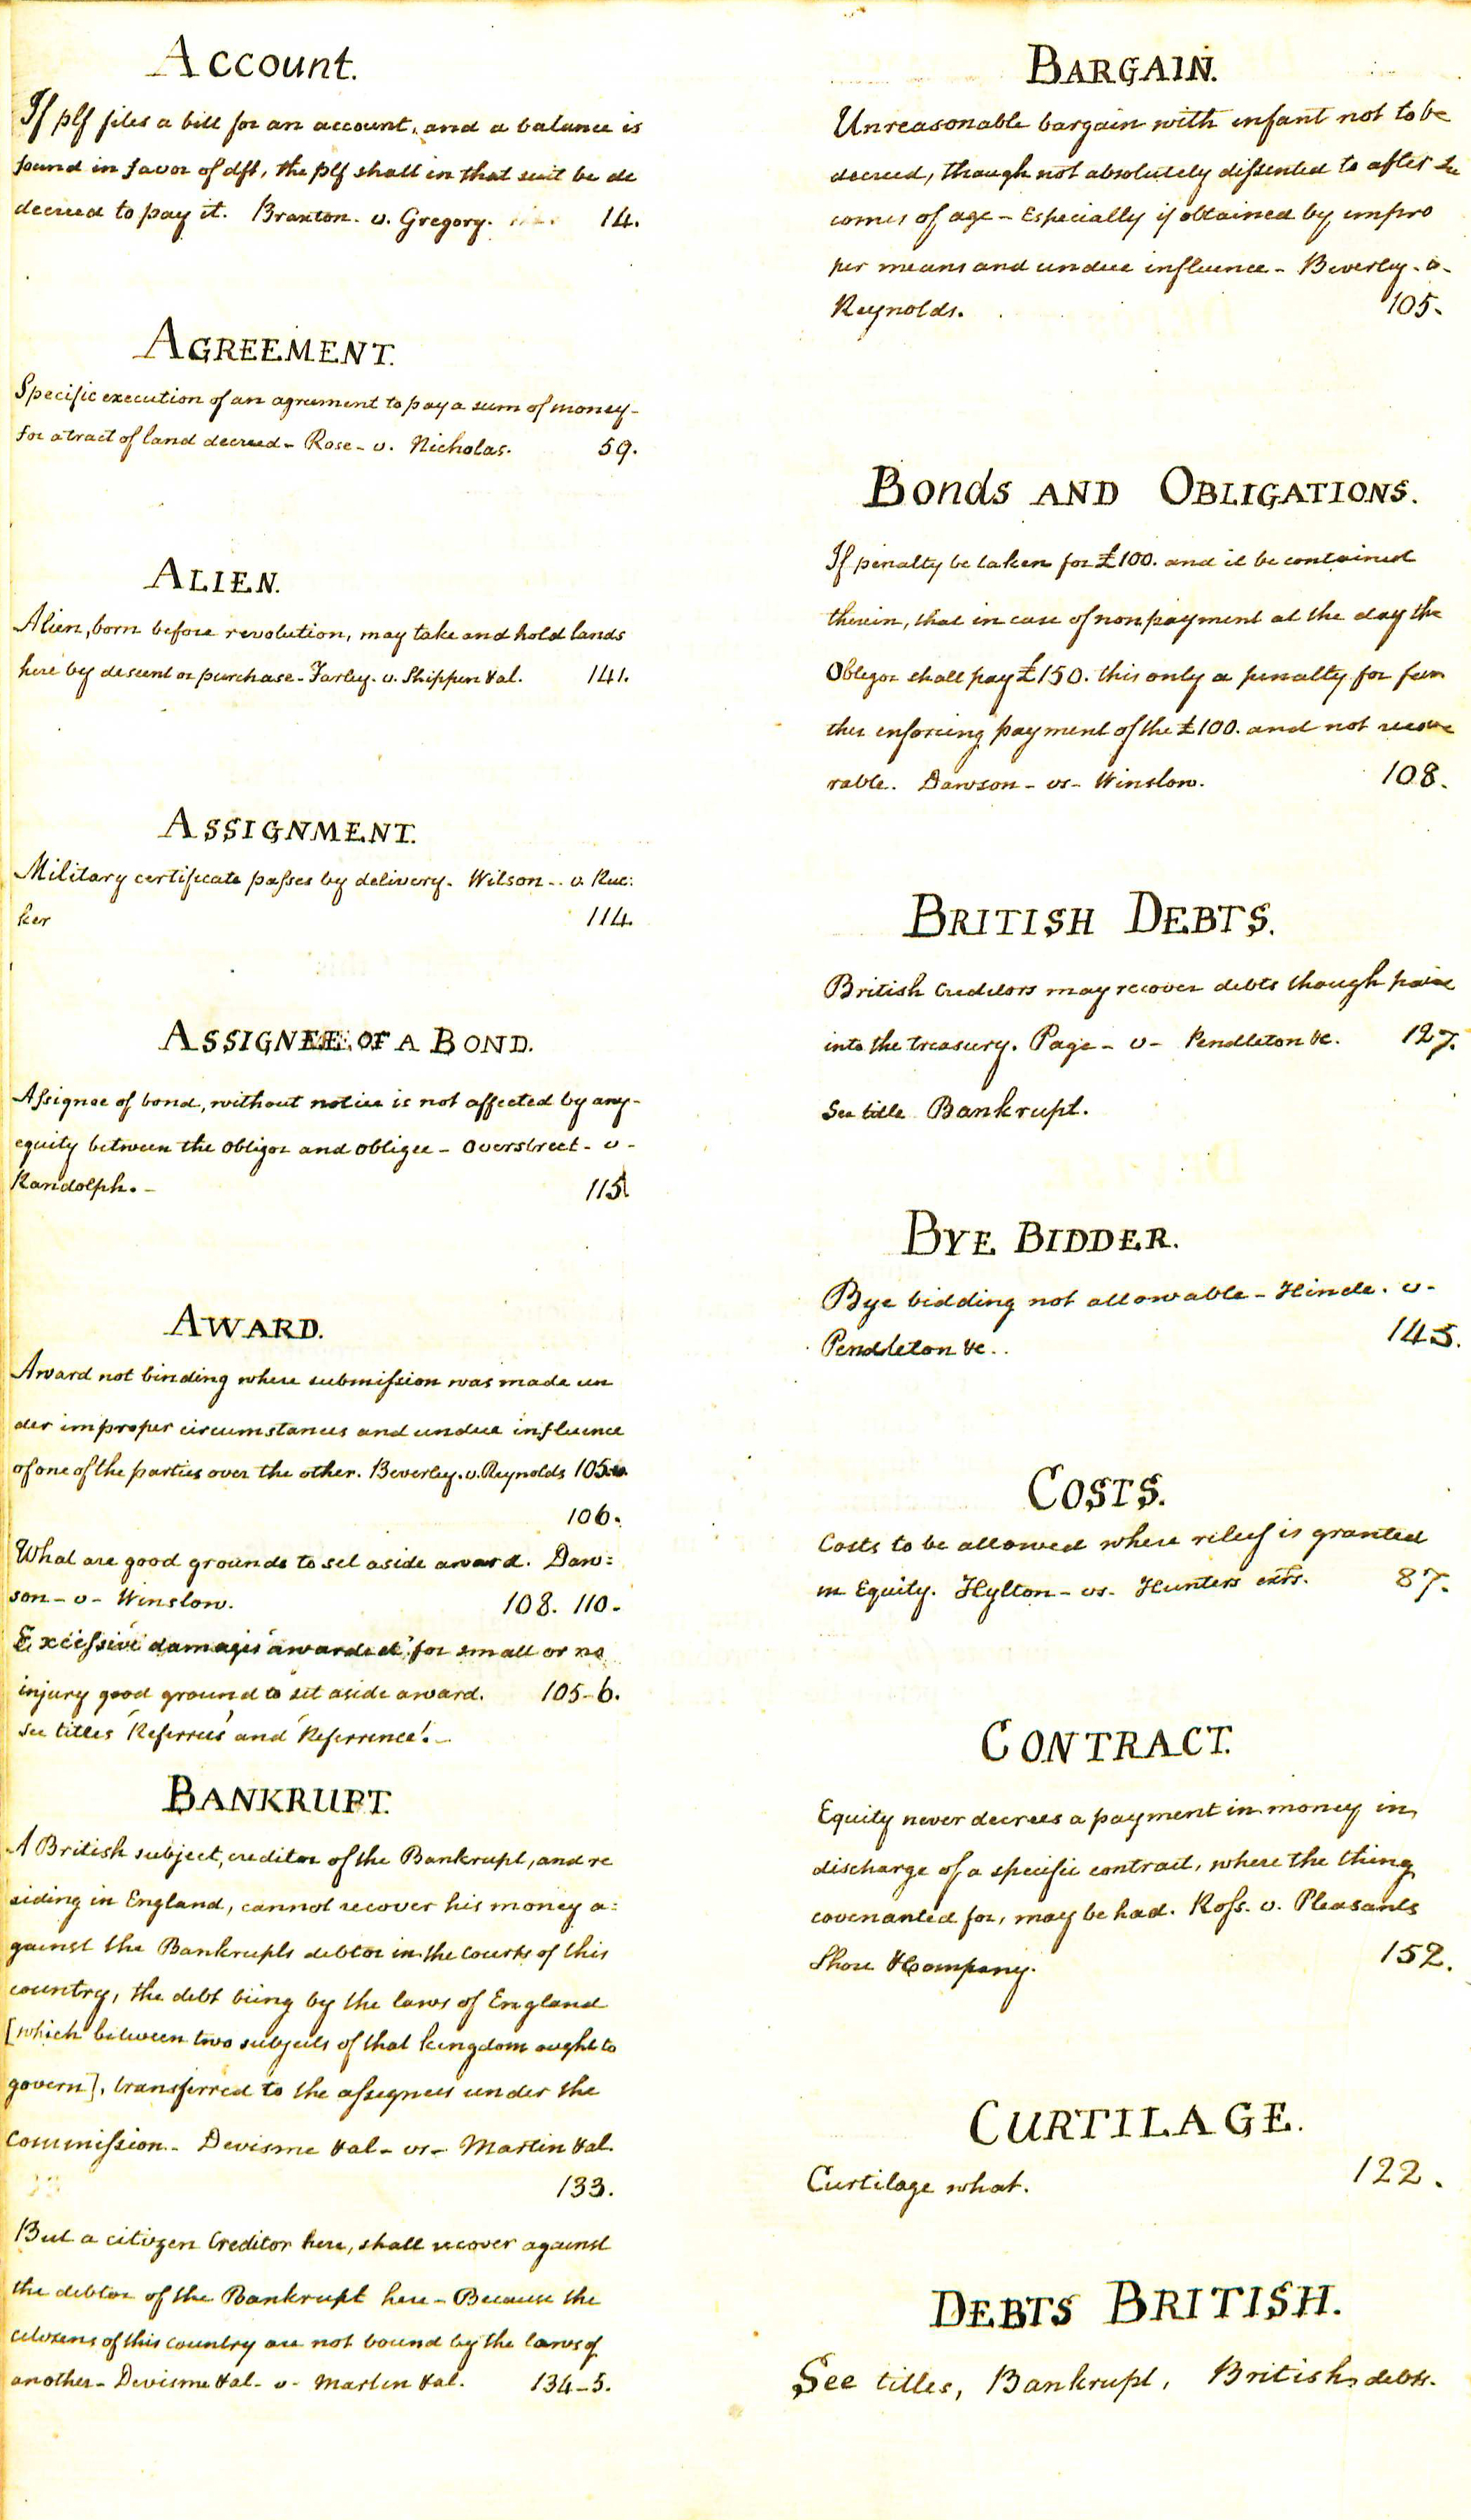 Account.
If plf files a bill for an account, and a balance is
found in favor of dft, the plf shall in that suit be de
decreed to pay it. Braxton. v. Gregory. 14.
AGREEMENT.
Specific execution of an agreement to pay a sum of money-
for a tract of land decreed- Rose- v. Nicholas. 59.
ALIEN.
Alien, born before revolution, may take and hold lands
here by descent or purchase- Farley. v. Shippen &al. 141.
ASSIGNMENT.
Military certificate passes by delivery. Wilson-. v. Ruc:
ker 114.
ASSIGNEE OF A BOND.
Assignee of bond, without notice is not affected by any-
equity between the obligor and obligee - Overstreet- v-
Randolph.- 115
AWARD.
Award not binding where submission was made un
der improper circumstances and undue influence
of one of the parties over the other. Beverley. v. Reynolds 105.
106.
What are good grounds to set aside award. Daw:
son- v- Winslow. 108. 110-
Excessive damages awarded for small or no
injury good ground to set aside award. 105-6.
See titles 'Referrees' and 'Referrence'.-
BANKRUPT.
A British subject, creditor of the Bankrupt, and re
siding in England, cannot recover his money a:
gainst the Bankrupts debtor in the courts of this
country, the debt being by the laws of England
[which between two subjects of that kingdom ought to
govern], transferred to the assignees under the
Commission- Devisme &al- vs- Martin &al.
133.
But a citizen Creditor here, shall recover against
the debtor of the Bankrupt here- Because the
citizens of this country are not bound by the laws of
another- Devisme &al- v- Martin &al. 134-5.
BARGAIN.
Unreasonable bargain with infant not to be
decreed, though not absolutely dissented to after he
comes of age - Especially if obtained by impro
per means and undue influence- Beverley- v-
Reynolds. 105.
Bonds AND OBLIGATIONS.
If penalty be taken for £100. and it be contained
therein, that in case of nonpayment at the day the
Obligor shall pay £150. this only a penalty for fur
ther enforcing payment of the £100. and not recove
rable. Dawson- vs- Winslow. 108.
BRITISH DEBTS.
British Creditors may recover debts though paid
into the treasury. Page- v- Pendleton &c. 127.
See title Bankrupt.
BYE BIDDER.
Bye bidding not allowable- Hinde. v-
Pendleton &c.. 145.
COSTS.
Costs to be allowed where relief is granted
in Equity. Hylton- vs- Hunters exrs. 87.
CONTRACT.
Equity never decrees a payment in money in
discharge of a specific contract, where the thing
covenanted for, may be had. Ross. v. Pleasants
Shore &Company. 152.
CURTILAGE.
Curtilage what. 122.
DEBTS BRITISH.
See titles, Bankrupt, British debts.